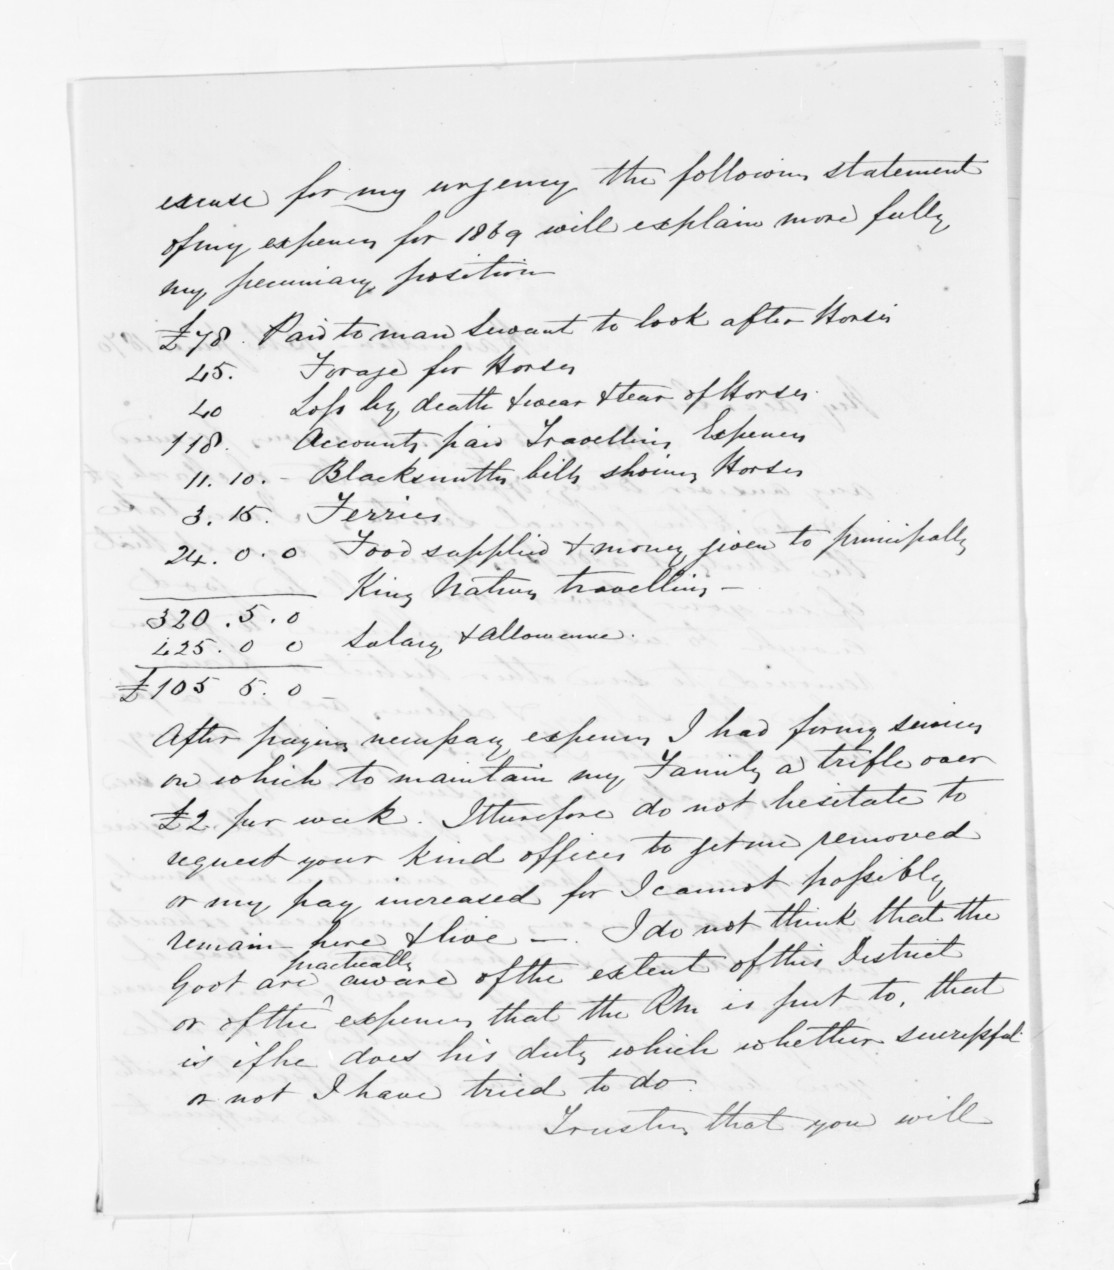 excuse for my urgency the following statement
of my expences for 1869 will explain more fully
my pecuniary position
£78. Paid to man servant to look after Horses
45. Forage for Horses
40 Loss by death & wear & tear of Horses.
118. Accounts paid Travelling Expences
11. 10. - Blacksmiths bills shoeing Horses
3. 15. Ferries
24. 0. 0 Food supplied & money given to principally
King Natives travelling -
320. 5. 0
425. 0 0 Salary & allowance.
£105 5. 0
After paying necessary expences I had for my services
on which to maintain my Family a trifle over
£2 per week. I therefore do not hesitate to
request your kind offices to get me removed
or my pay increased for I cannot possibly
remain here & live -. I do not think that the
Govt are practically aware of the extent of this District
or of the expences that the RM is put to, that
is if he does his duty which whether successful
or not I have tried to do.
Trusting that you will